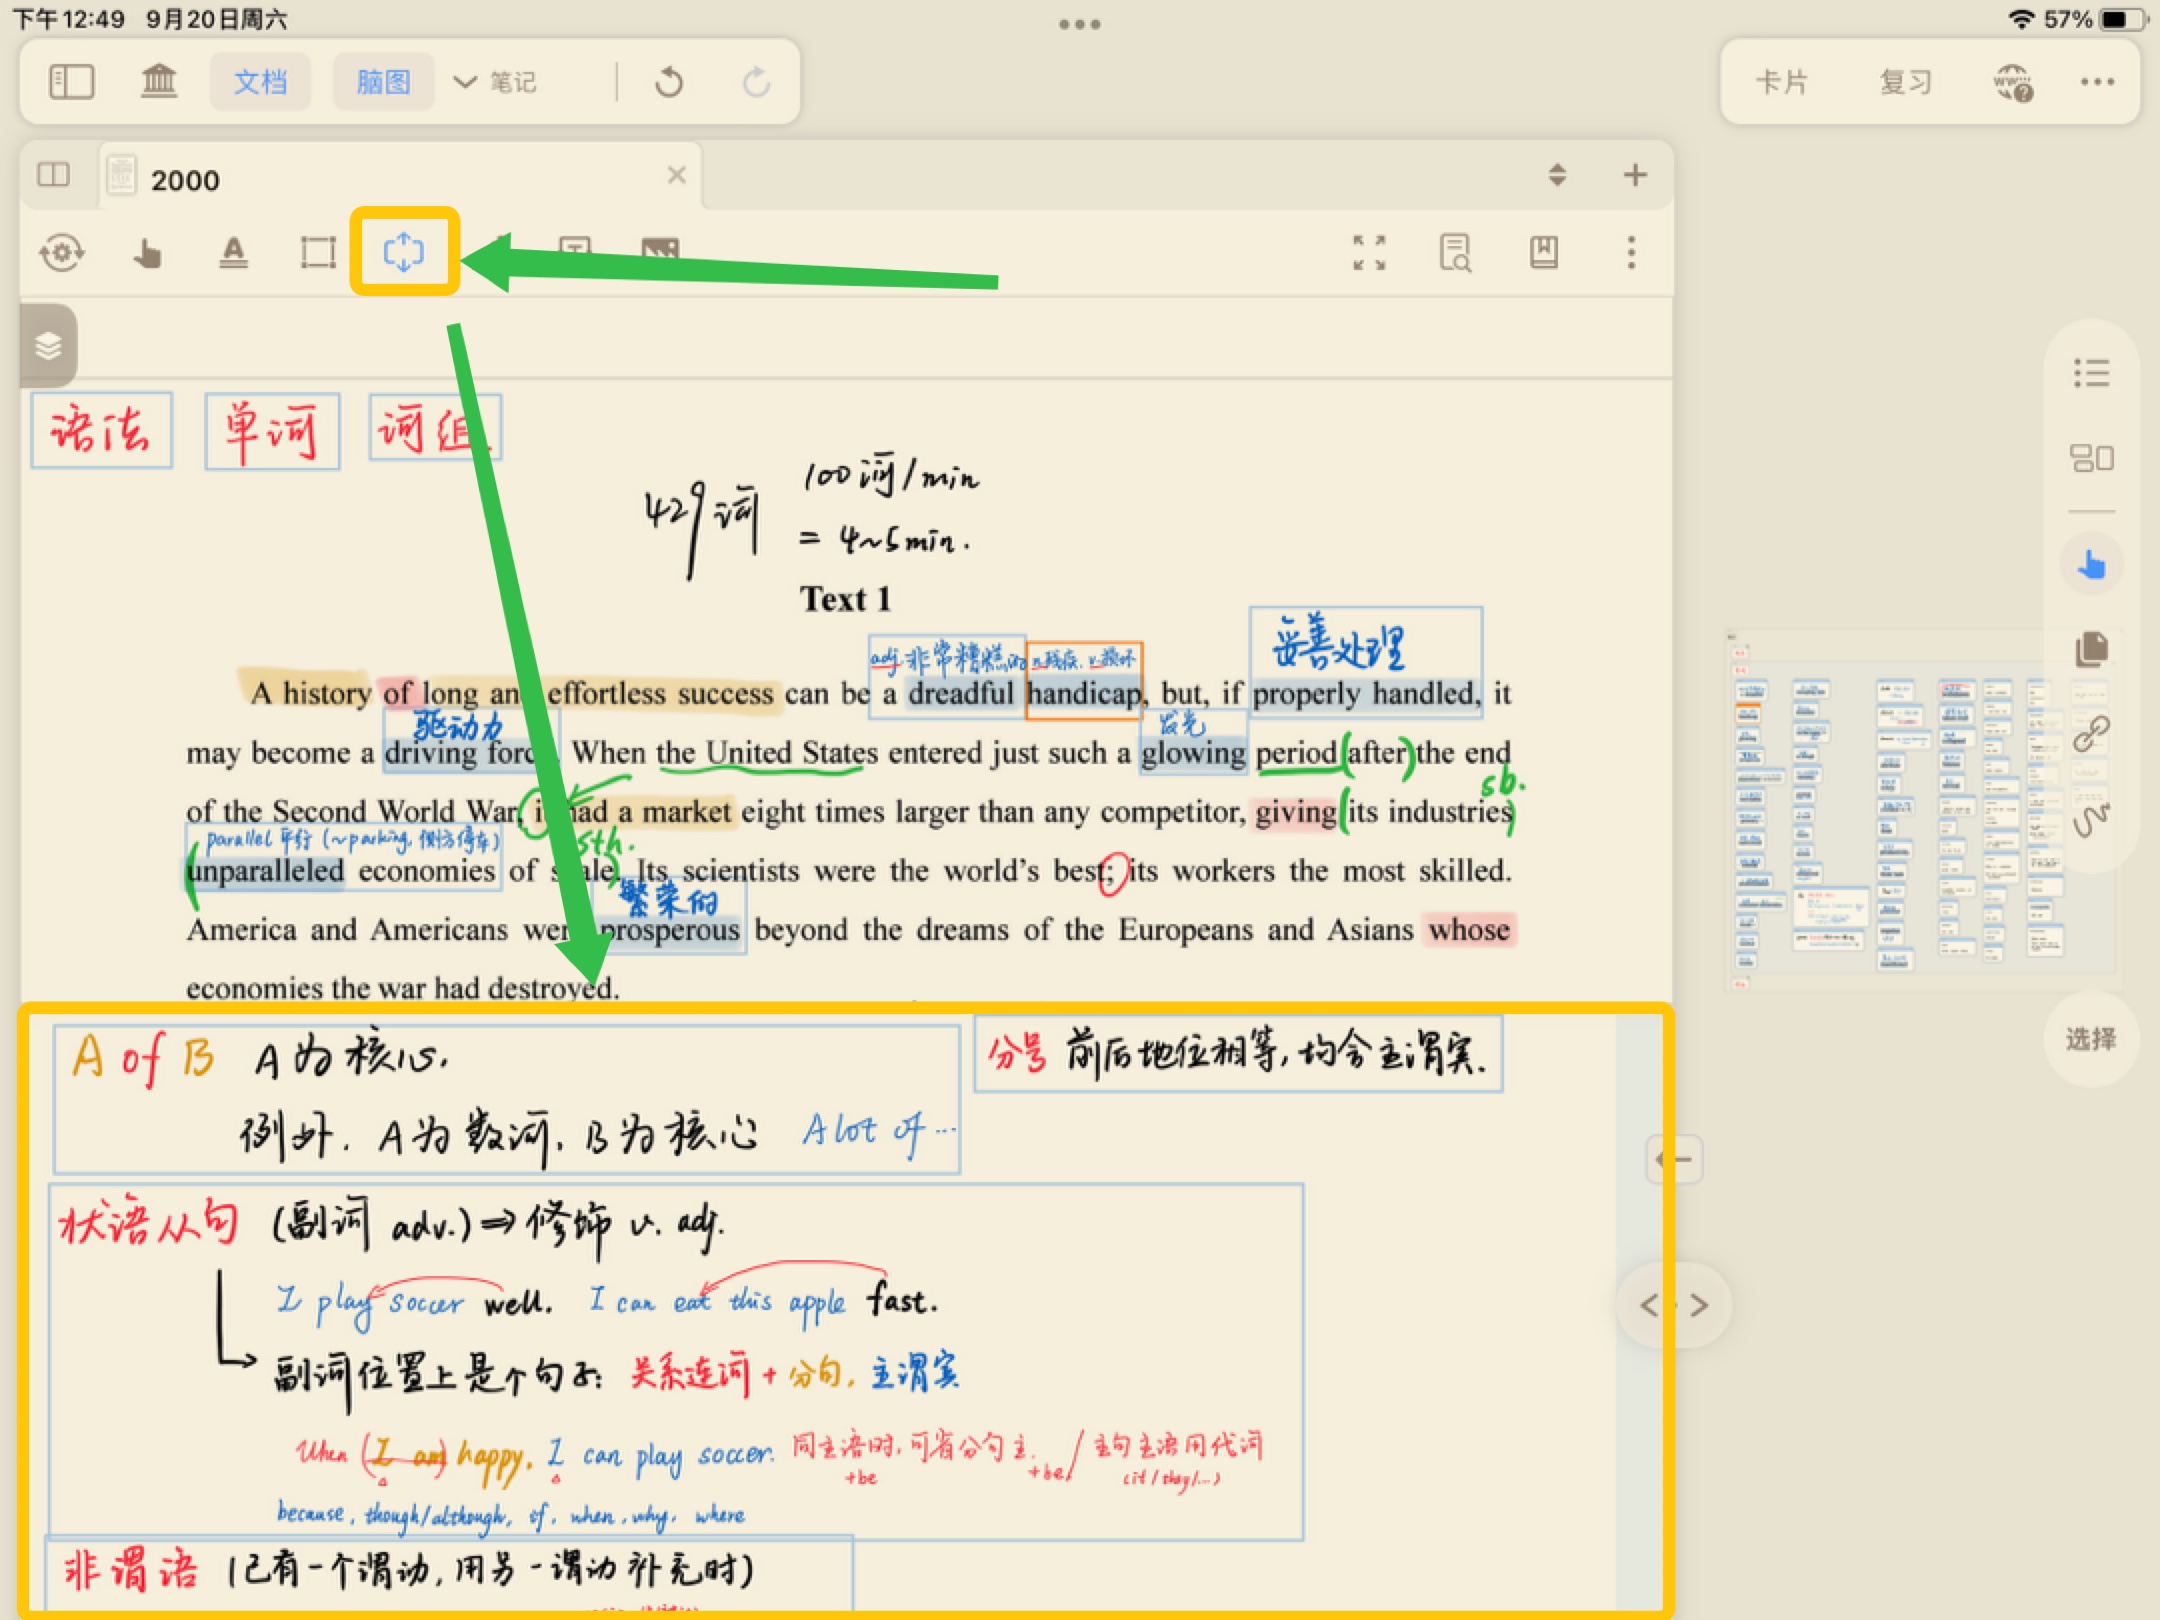 下午12:49 9月20日周六
57%
文档 脑图 笔记
卡片 复习
2000
语法 单词 词组
429词
100词/min
= 4~5min.
Text 1
adj.非常糟糕的 n.残疾. v.损坏 妥善处理
A history of long and effortless success can be a dreadful handicap, but, if properly handled, it
驱动力 发光
may become a driving forc When the United States entered just such a glowing period (after) the end
sb.
of the Second World War, i had a market eight times larger than any competitor, giving (its industries)
parallel 平行 (~parking, 侧方停车) sth.
(unparalleled economies of s ale) Its scientists were the world's best; its workers the most skilled.
繁荣的
America and Americans wer prosperous beyond the dreams of the Europeans and Asians whose
economies the war had destroyed.
A of B A为核心.
例外. A为数词, B为核心 A lot of …
分号 前后地位相等, 均含主谓宾.
选择
状语从句 (副词 adv.) ⇒ 修饰 v. adj.
I play soccer well. I can eat this apple fast.
副词位置上是个句子: 关系连词 + 分句, 主谓宾
When (I am) happy, I can play soccer. 同主语时, 可省分句主. +be / 主句主语用代词
+be (it/they/...)
because, though/although, if, when, why, where
非谓语 (已有一个谓动, 用另一谓动补充时)